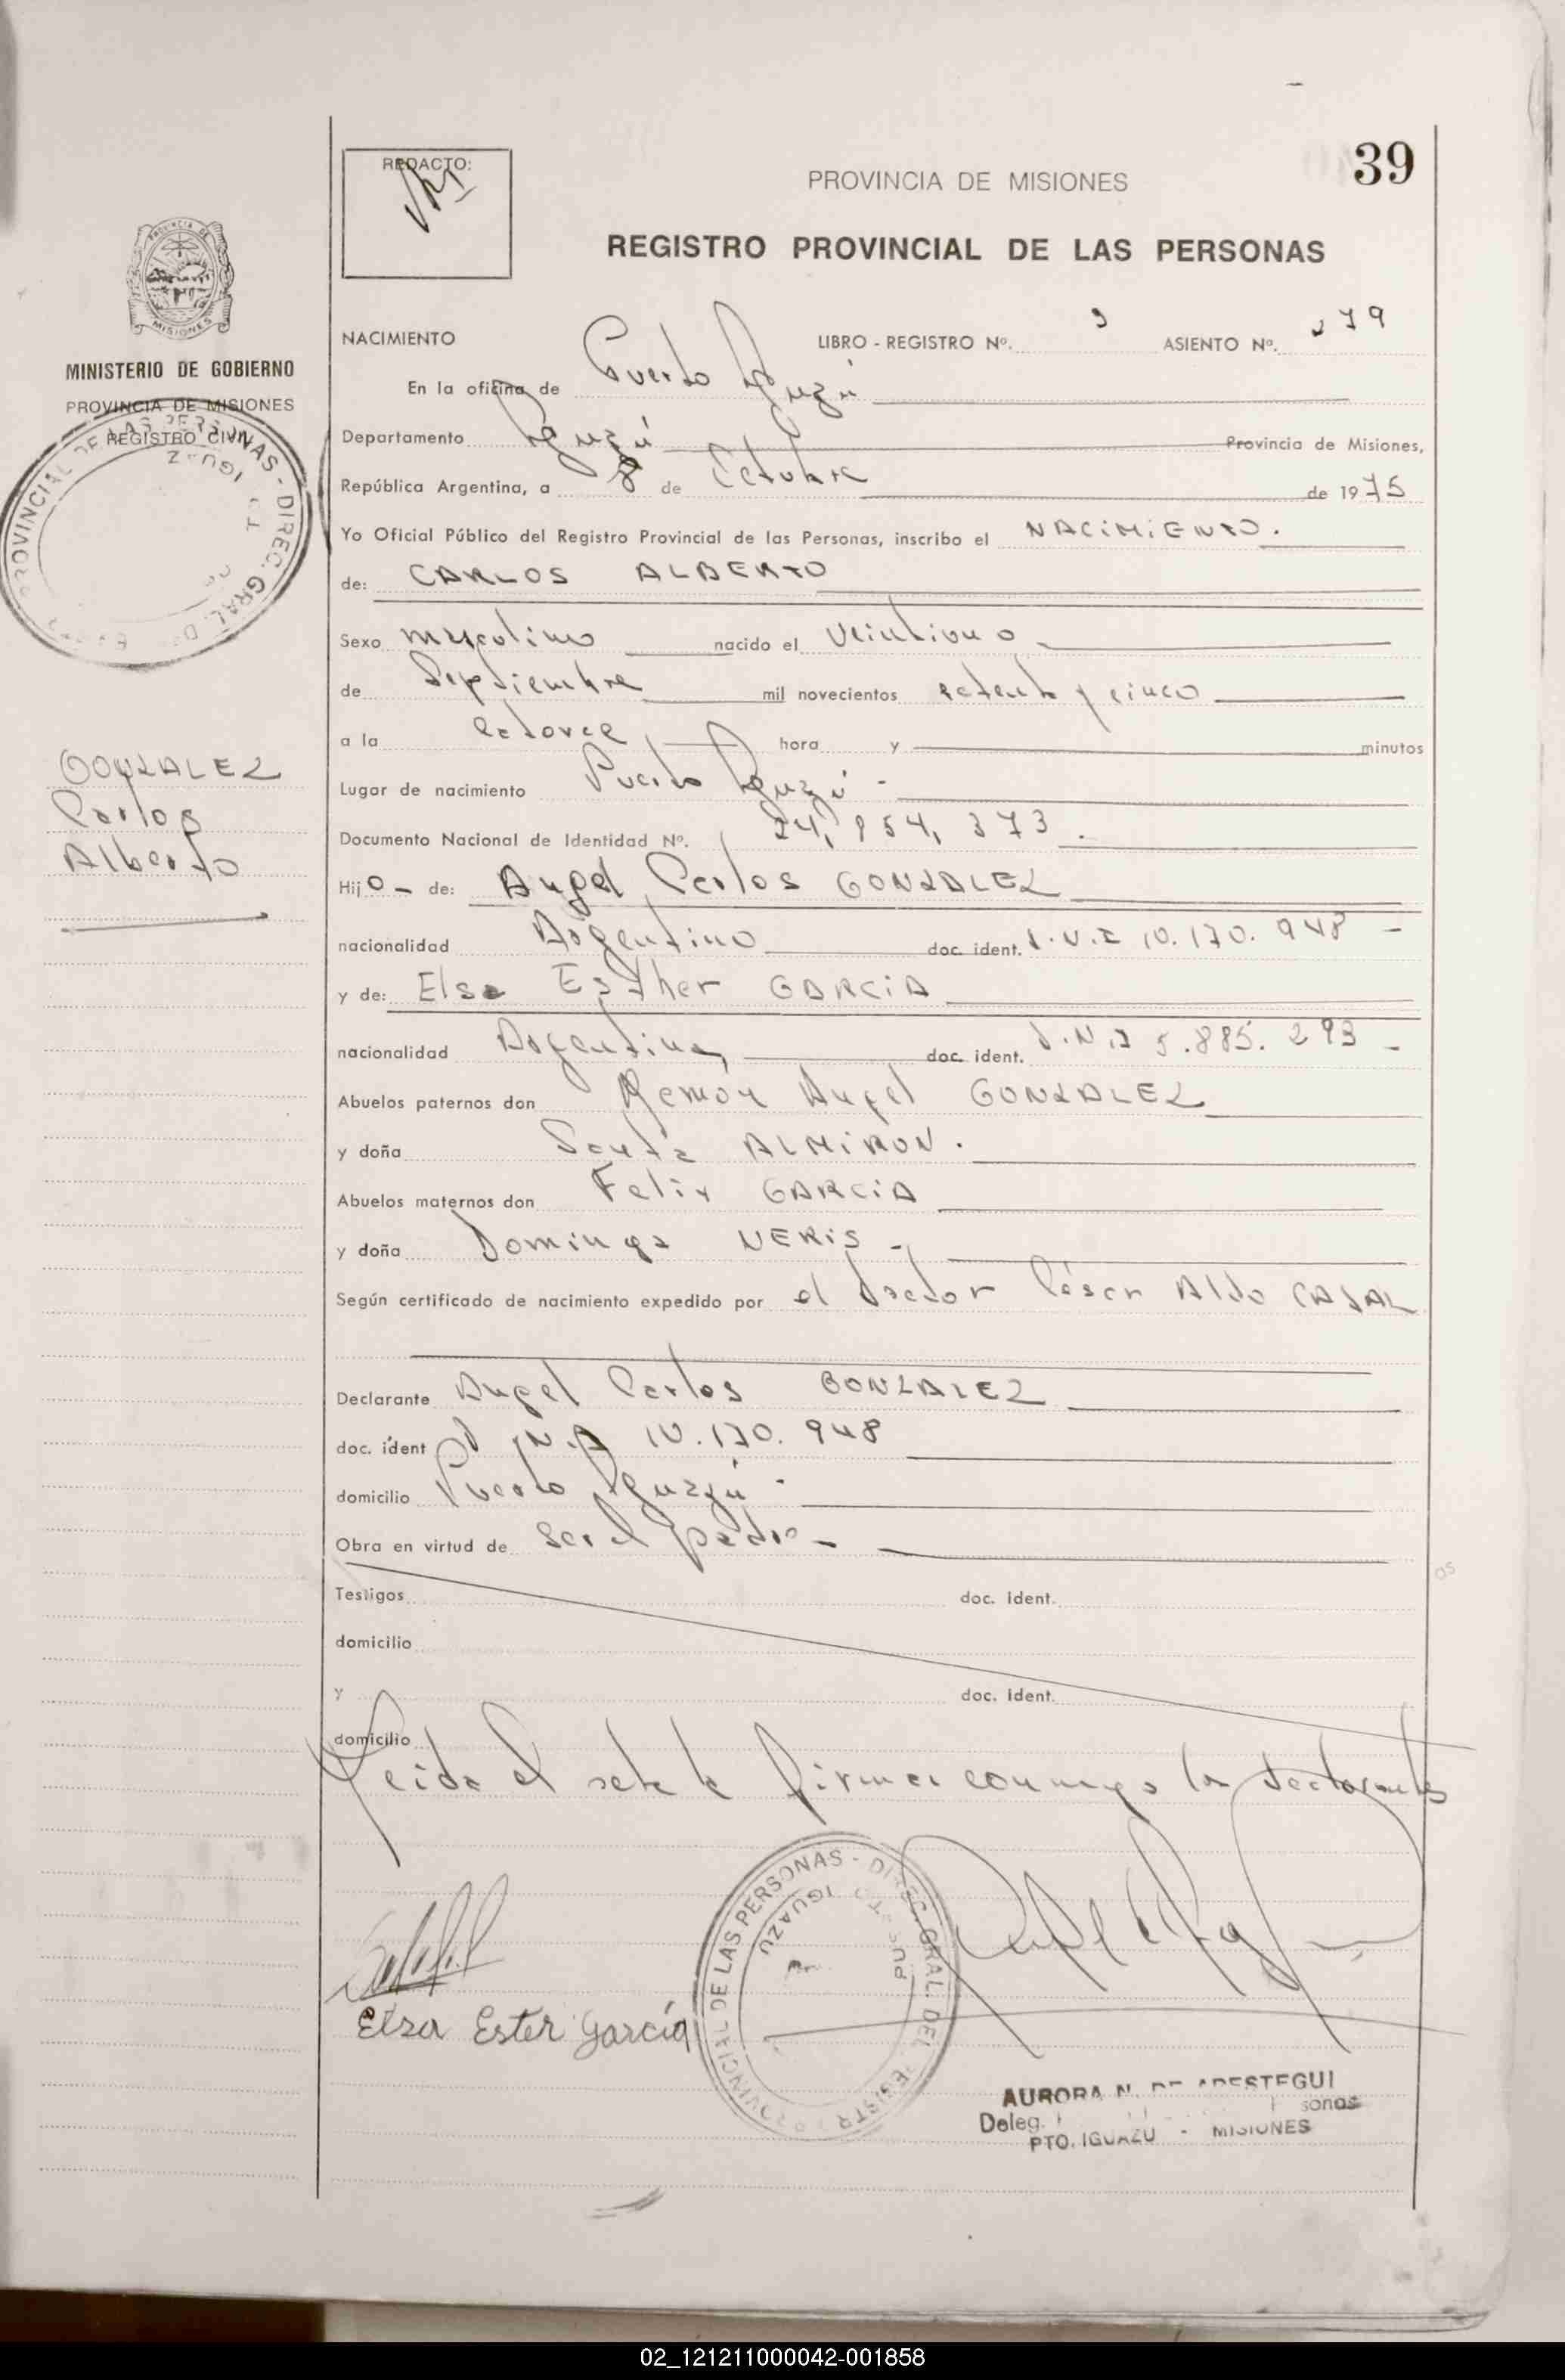 REDACTO:
PROVINCIA DE MISIONES
39
REGISTRO PROVINCIAL DE LAS PERSONAS
MISIONES
MINISTERIO DE GOBIERNO
PROVINCIA DE MISIONES
REGISTRO CIVIL
NACIMIENTO LIBRO - REGISTRO Nº. 3 ASIENTO Nº. 279
En la oficina de Puerto Iguazú
Departamento Iguazú Provincia de Misiones,
República Argentina, a 8 de Octubre de 1975
Yo Oficial Público del Registro Provincial de las Personas, inscribo el NACIMIENTO.
de: CARLOS ALBERTO
Sexo masculino nacido el veintiuno
de Septiembre mil novecientos setenta y cinco
a la catorce hora y minutos
Lugar de nacimiento Puerto Iguazú -
Documento Nacional de Identidad Nº. 24,954,373.
GONZALEZ
Carlos
Alberto
Hijo - de: Angel Carlos GONZALEZ
nacionalidad Argentino doc. ident. D.N.I 10.170.948 -
y de: Elsa Esther GARCIA
nacionalidad Argentina doc. ident. D.N.I 5.885.293 -
Abuelos paternos don Ramón Angel GONZALEZ
y doña Santa ALMIRON.
Abuelos maternos don Felix GARCIA
y doña Dominga NERIS -
Según certificado de nacimiento expedido por el doctor César Aldo CASAL
Declarante Angel Carlos GONZALEZ
doc. ident D.N.I 10.170.948
domicilio Puerto Iguazú -
Obra en virtud de ser el padre -
Testigos doc. ident.
domicilio
y doc. ident.
domicilio
Leida el acta la firman conmigo los declarantes
Elsa Ester García
PROVINCIAL DE LAS PERSONAS - DIREC. GRAL. DEL REGISTR
PUERTO IGUAZU
AURORA N. DE ARESTEGUI
Deleg. sonas
PTO. IGUAZU - MISIONES
02_121211000042-001858